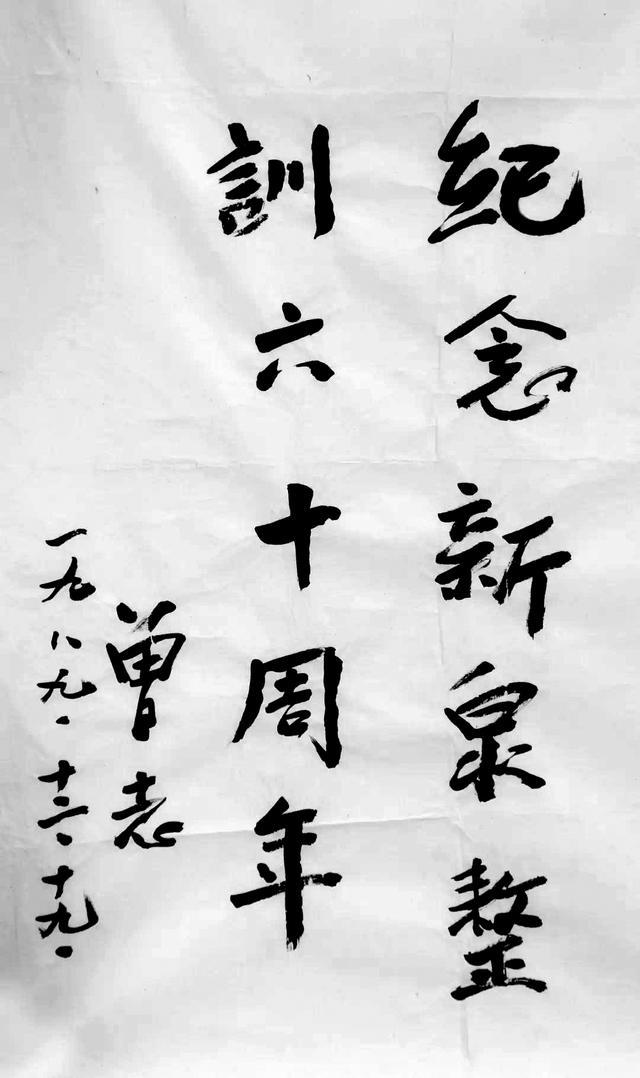 紀念新泉整
訓六十周年
曾志
一九八九.十二.十九.